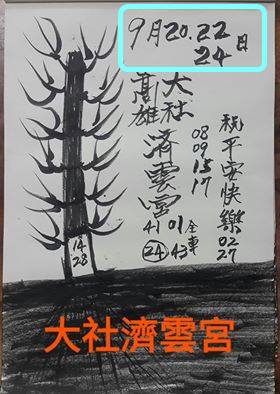 9月20.22
24日
祝平安快樂02
27
大社
高雄
濟雲宮
08
09
15
17
01全車
41 43
24
14
28
大社濟雲宮